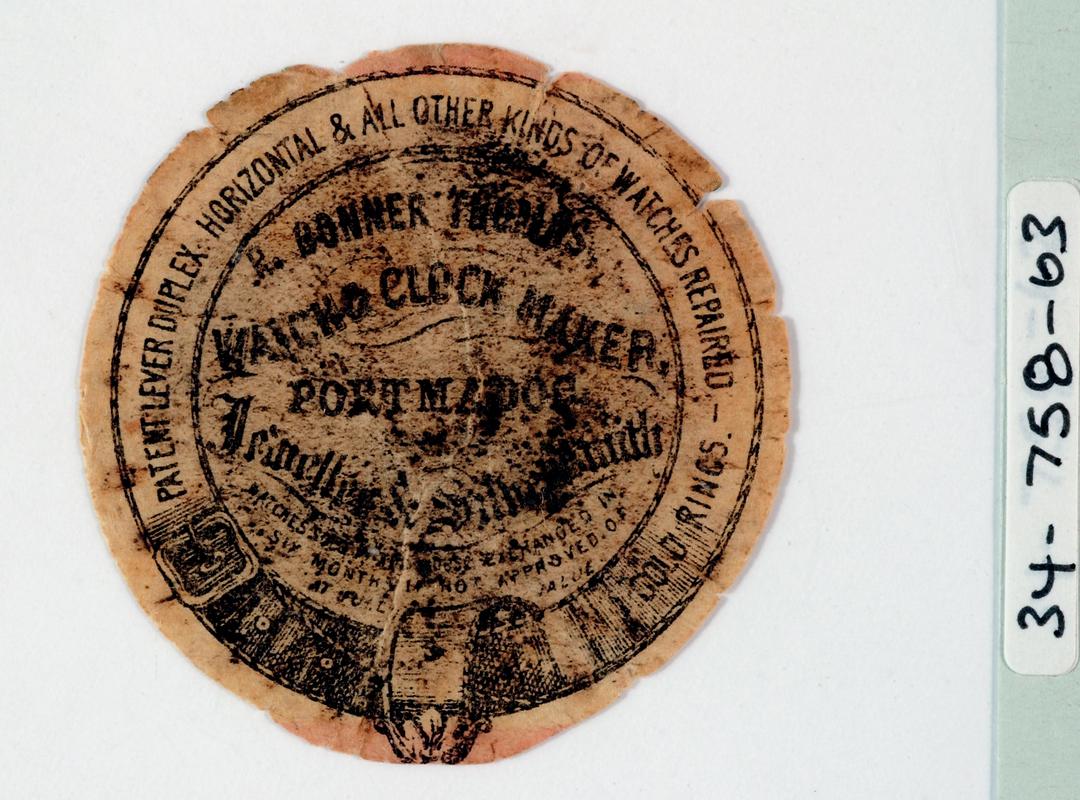 PATENT LEVER DUPLEX. HORIZONTAL & ALL OTHER KINDS OF WATCHES REPAIRED — GOLD RINGS.
R. BONNER THOMAS,
WATCH & CLOCK MAKER,
PORTMADOC
Jeweller & Silversmith
EXCHANGED IN
SIX MONTHS IF NOT APPROVED. OF
VALUE
34-758-63